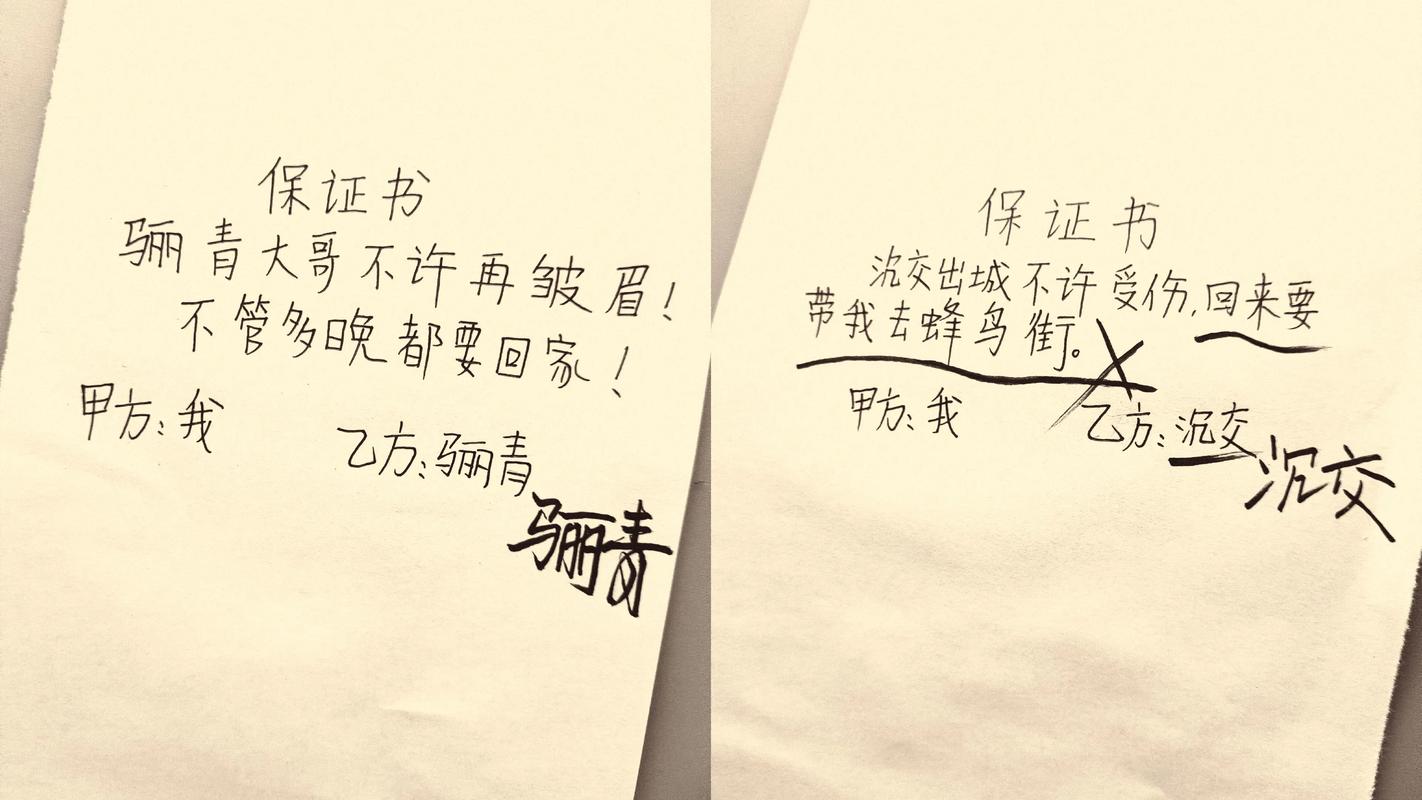 保证书
骊青大哥不许再皱眉！
不管多晚都要回家！
甲方：我 乙方：骊青
骊青
保证书
沉交出城不许受伤，回来要
带我去蜂鸟街。
甲方：我 乙方：沉交
沉交